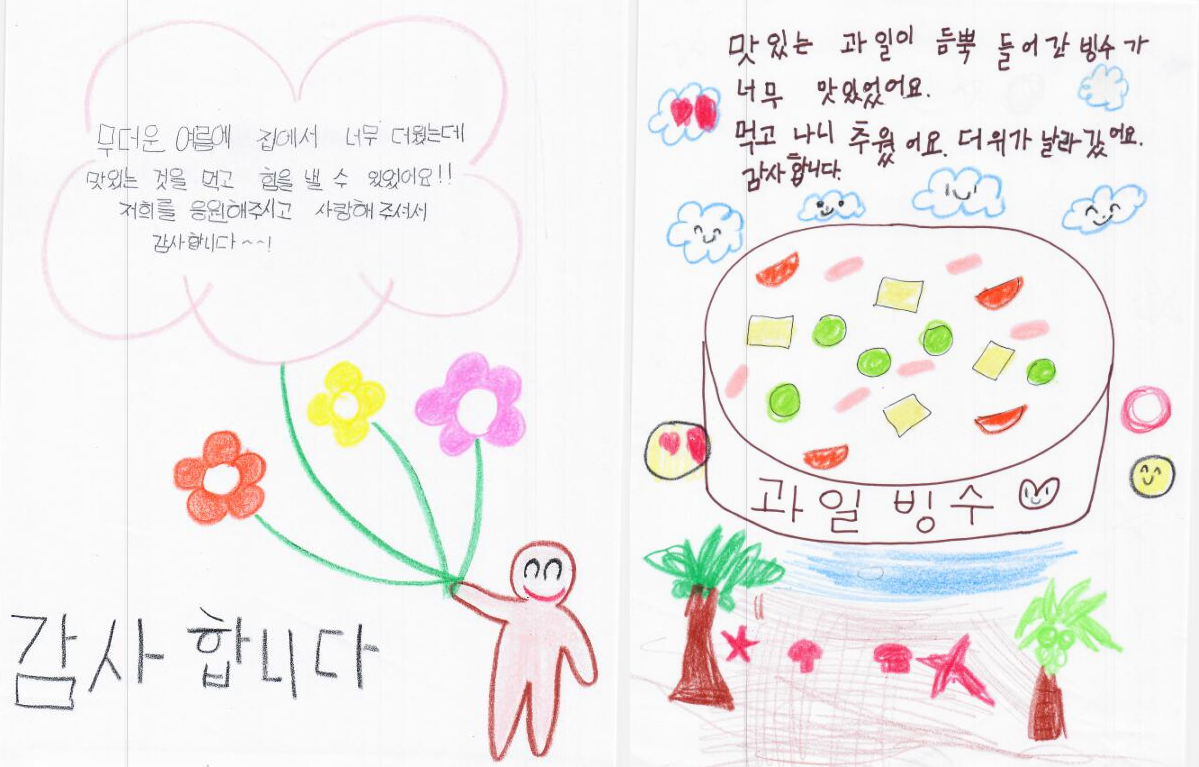 무더운 여름에 집에서 너무 더웠는데
맛있는 것을 먹고 힘을 낼 수 있었어요!!
저희를 응원해주시고 사랑해주셔서
감사합니다~~!
감사합니다
맛있는 과일이 듬뿍 들어간 빙수가
너무 맛있었어요.
먹고 나니 추웠어요. 더위가 날라갔어요.
감사합니다.
과일 빙수